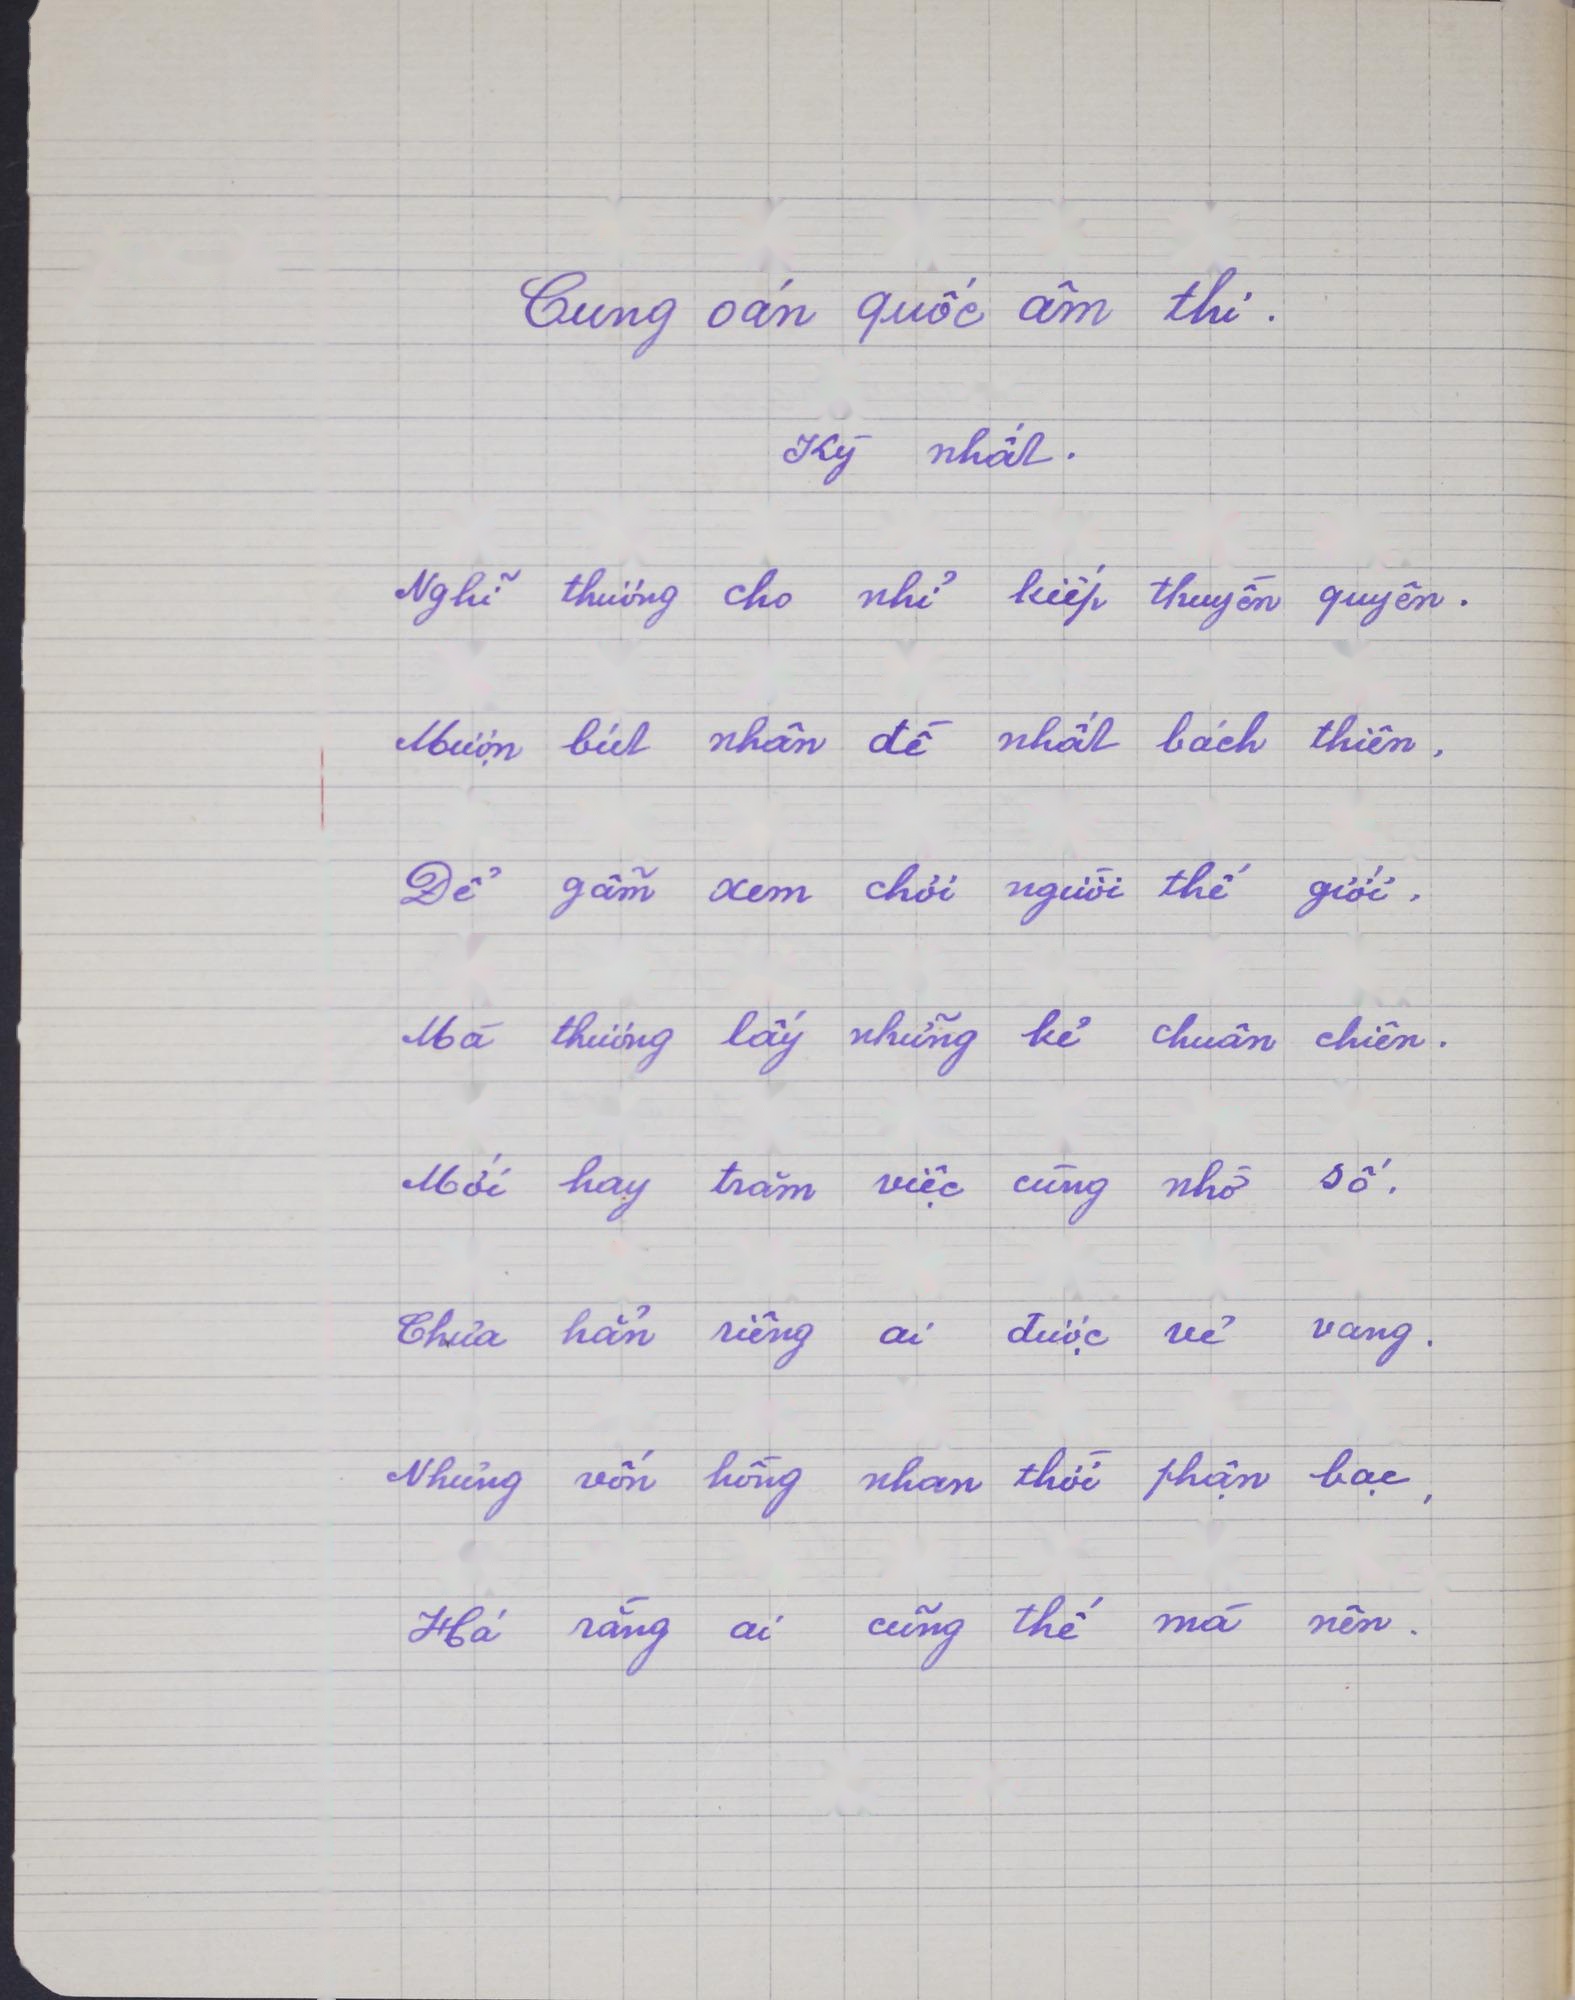 Cung oán quốc âm thi.
Kỳ nhất.
Nghĩ thương cho nhỉ kiếp thuyền quyên.
Mượn bút nhân đề nhất bách thiên,
Để gẫm xem chơi người thế giới,
Mà thương lấy những kẻ chuân chiên.
Mới hay trăm việc cùng nhờ số,
Chưa hẳn riêng ai được vẻ vang.
Nhưng vốn hồng nhan thời phận bạc,
Há rằng ai cũng thế mà nên.